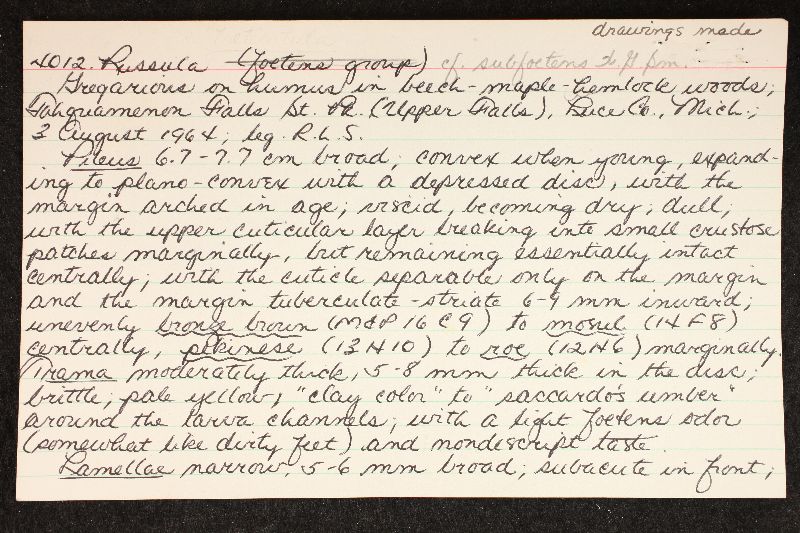 drawings made
4012. Russula (foetens group) cf. subfoetens W. G. Sm.
Gregarious on humus in beech-maple-hemlock woods;
Tahquamenon Falls St. Pk. (Upper Falls), Luce Co., Mich.;
3 August 1964; leg. R.L.S.
Pileus 6.7-7.7 cm broad; convex when young, expand-
ing to plano-convex with a depressed disc, with the
margin arched in age; viscid, becoming dry; dull;
with the upper cuticular layer breaking into small crustose
patches marginally, but remaining essentially intact
centrally; with the cuticle separable only on the margin
and the margin tuberculate-striate 6-9 mm inward;
unevenly bronze brown (M&P 16 C 9) to mosul (14 F 8)
centrally, pekinese (13 H 10) to roe (12 H 6) marginally.
Trama moderately thick, 5-8 mm thick in the disc;
brittle; pale yellow, "clay color" to "saccardo's umber"
around the larva channels; with a light foetens odor
(somewhat like dirty feet) and nondescript taste.
Lamellae narrow, 5-6 mm broad; subacute in front;